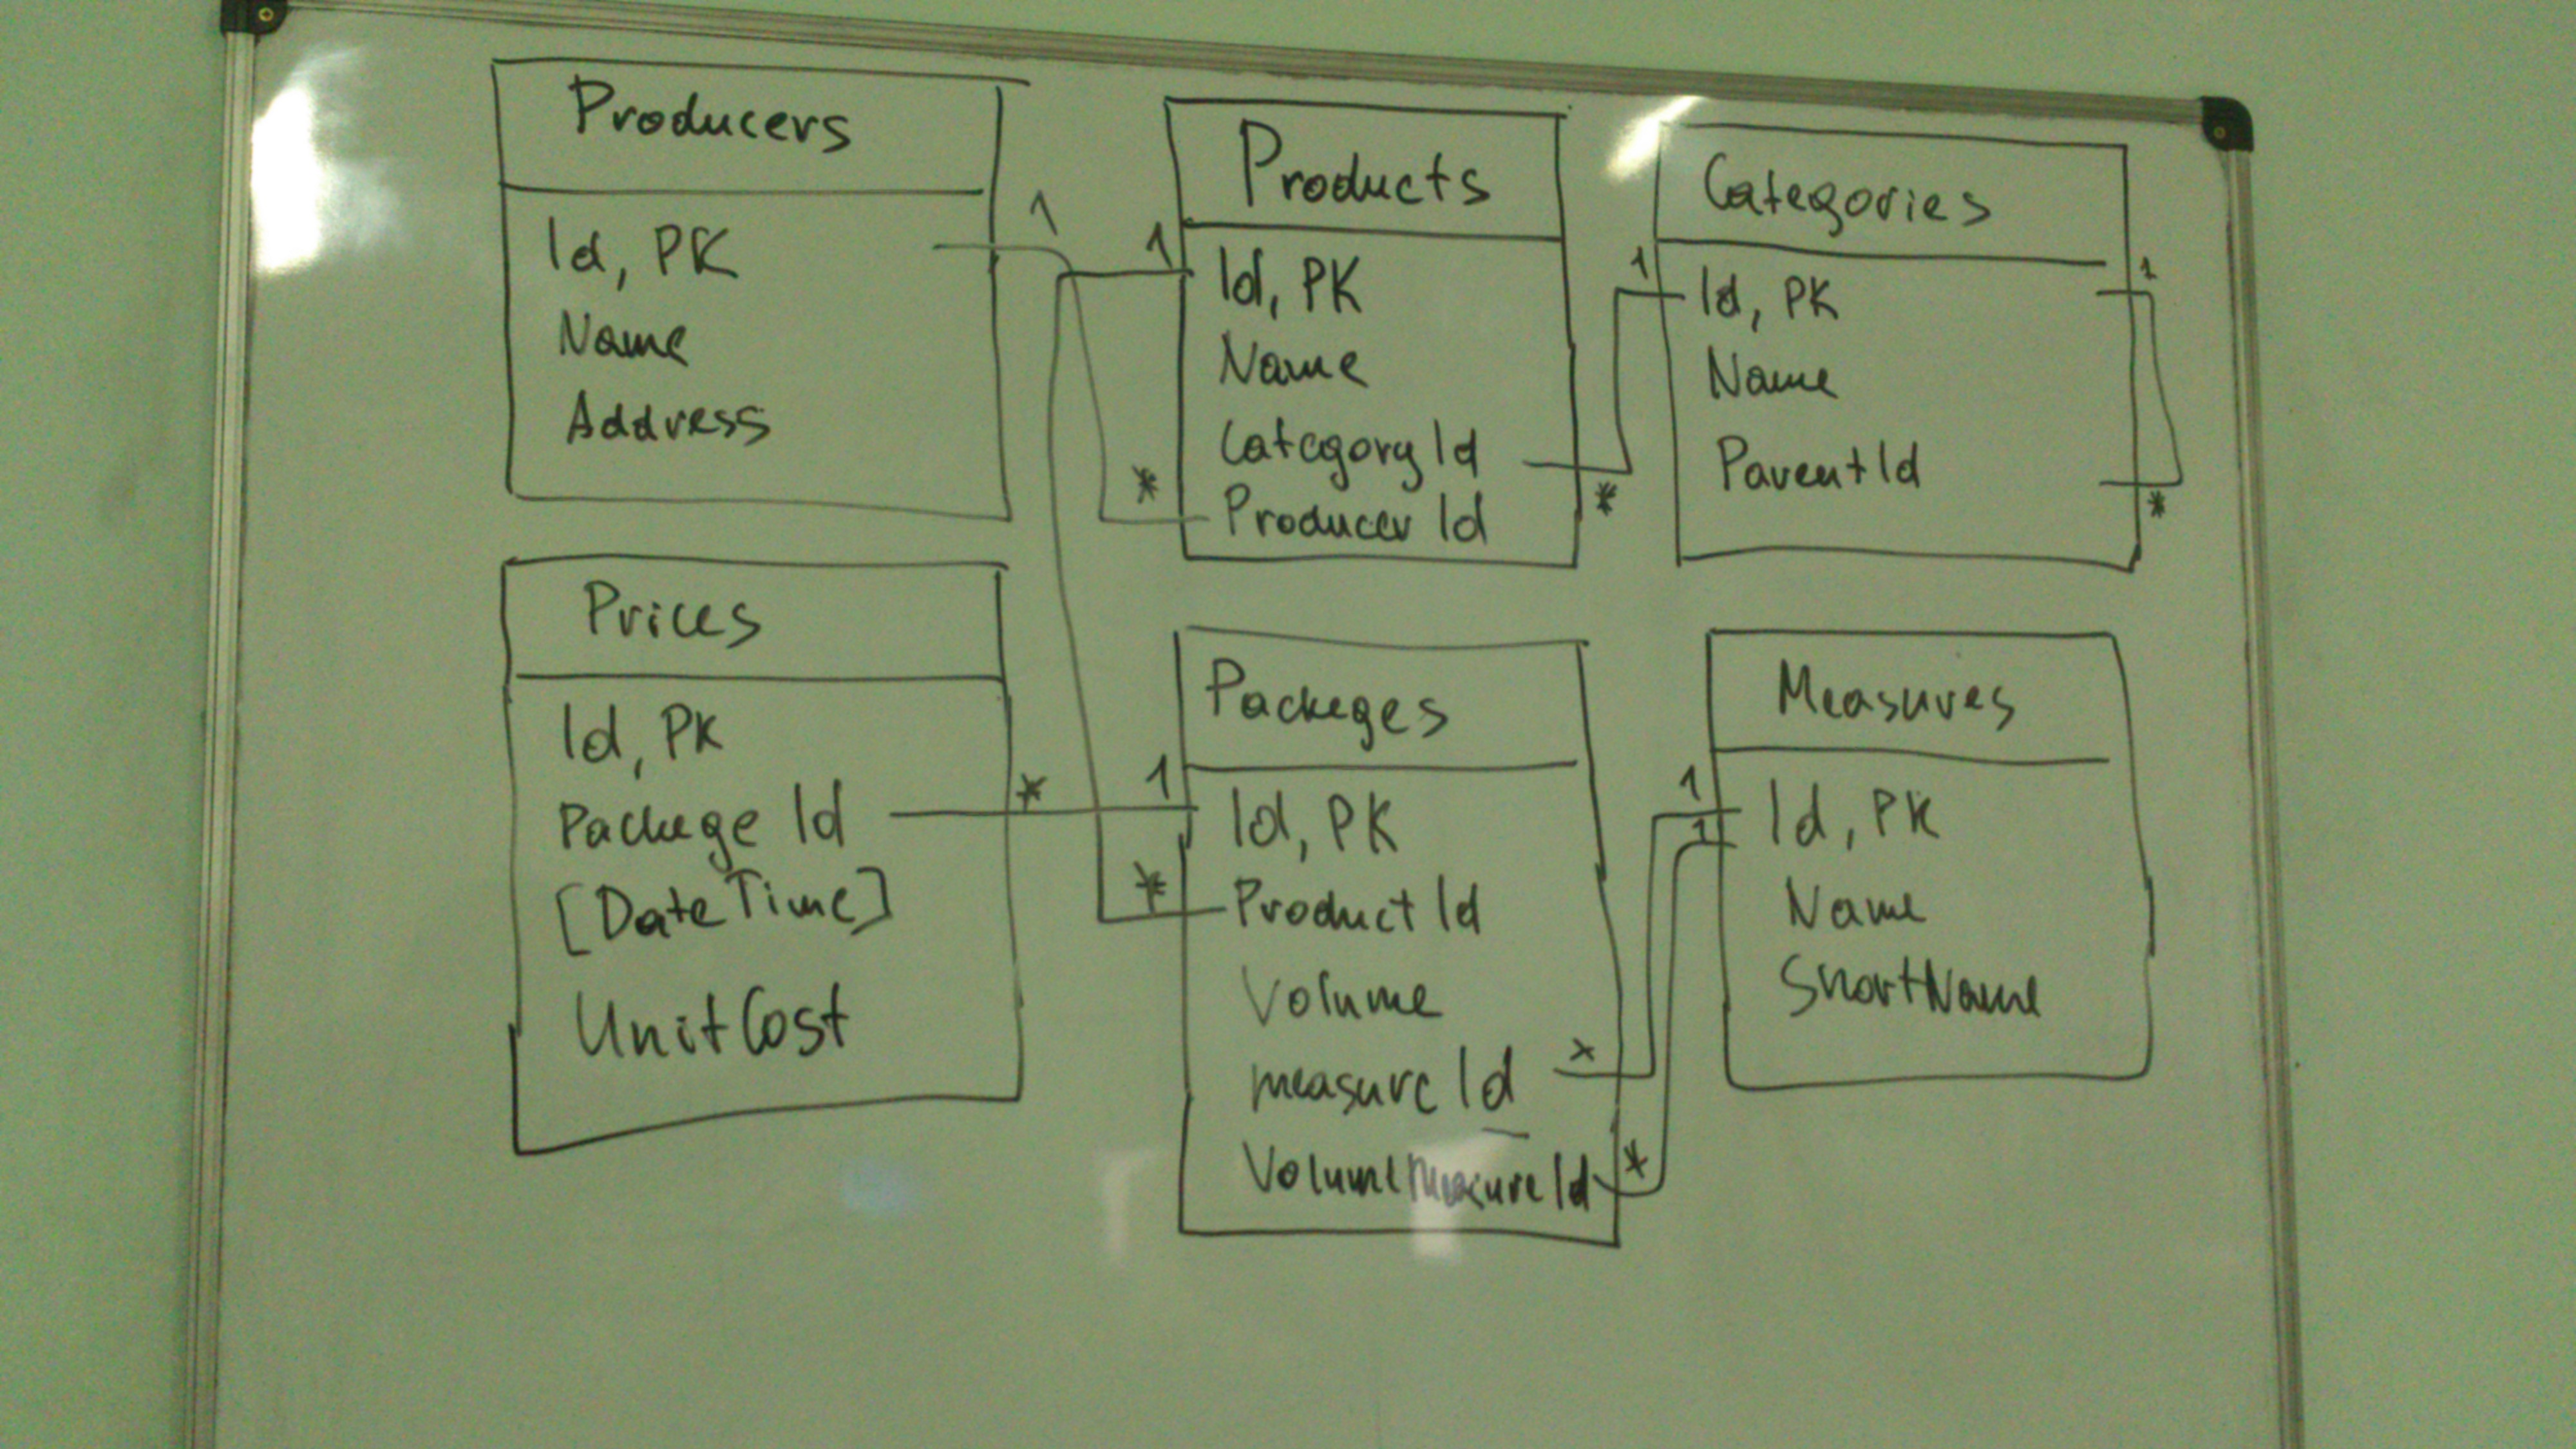 Producers
Id, PK
Name
Address
1
*
Products
1
Id, PK
Name
CategoryId
Producer Id
*
Categories
1
1
Id, PK
Name
ParentId
*
Prices
Id, PK
Packege Id
[DateTime]
UnitCost
*
Packeges
1
Id, PK
*
ProductId
Volume
measureId
*
VolumeMeasureId
*
Measures
1
1
Id, PK
Name
ShortName